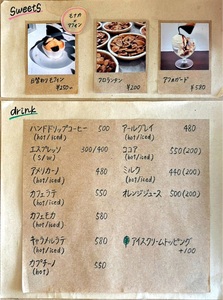 Sweets
モナカ
マフィン
日替わりモナカ
¥250-
フロランタン
¥200
アフォガード
¥580
drink
ハンドドリップコーヒー 500
(hot/iced)
エスプレッソ 300/400
(S/W)
アメリカーノ 480
(hot/iced)
カフェラテ 550
(hot/iced)
カフェモカ 580
(hot/iced)
キャラメルラテ 580
(hot/iced)
カプチーノ 550
(hot)
アールグレイ 480
(hot/iced)
ココア 550(200)
(hot/iced)
ミルク 440(200)
(hot/iced)
オレンジジュース 500(200)
アイスクリームトッピング
+100